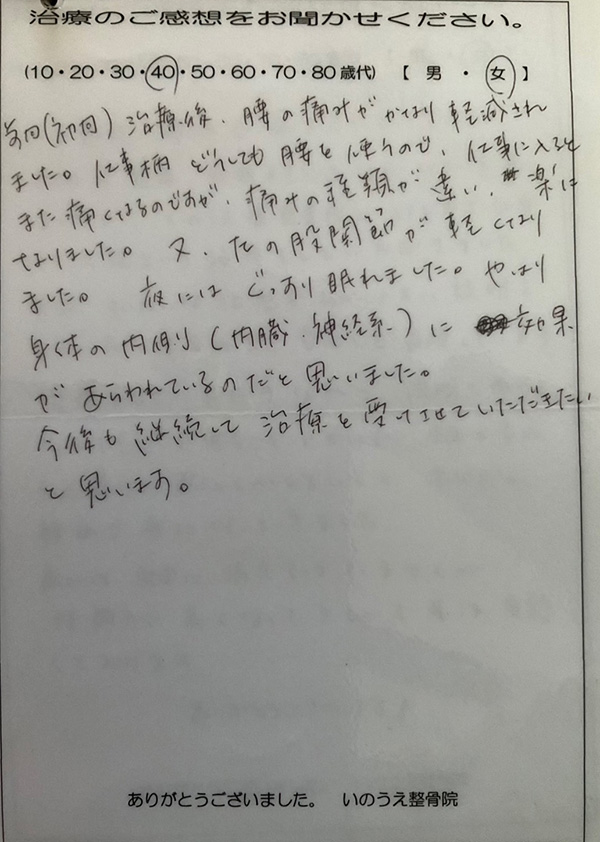 治療のご感想をお聞かせください。
(10・20・30・40・50・60・70・80歳代) 【 男 ・ 女 】
前回(初回)治療後、腰の痛みがかなり軽減され
ました。仕事柄どうしても腰を使うので、仕事に入ると
また痛くなるのですが、痛みの種類が違い、楽に
なりました。又、左の股関節が軽くなり
ました。夜にはぐっすり眠れました。やはり
身体の内側(内臓・神経系)に効果
があらわれているのだと思いました。
今後も継続して治療を受けさせていただきたい
と思います。
ありがとうございました。 いのうえ整骨院